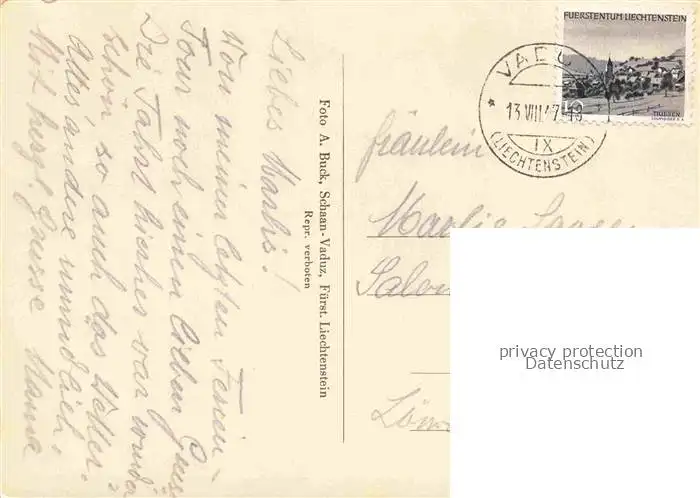 Liebes Marlis!
Von meiner letzten Ferien-
Tour noch einen lieben Gruss
Die Fahrt hierher war wunder
schön, so auch das Wetter.
Alles andere mündlich.
Mit herzl. Grüsse
Foto A. Buck, Schaan-Vaduz, Fürst. Liechtenstein
Repr. verboten
FUERSTENTUM LIECHTENSTEIN
10
TRIESEN
VADUZ
13.VIII.47-19
IX
(LIECHTENSTEIN)
Fräulein
privacy protection
Datenschutz